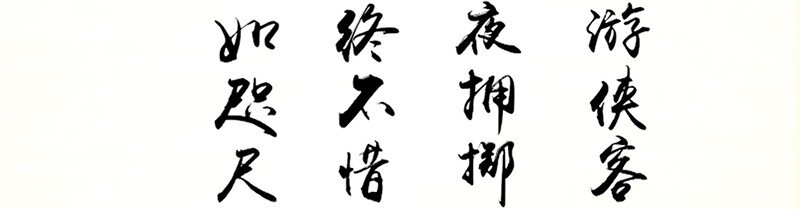 游侠客
夜拥掷
终不惜
如咫尺